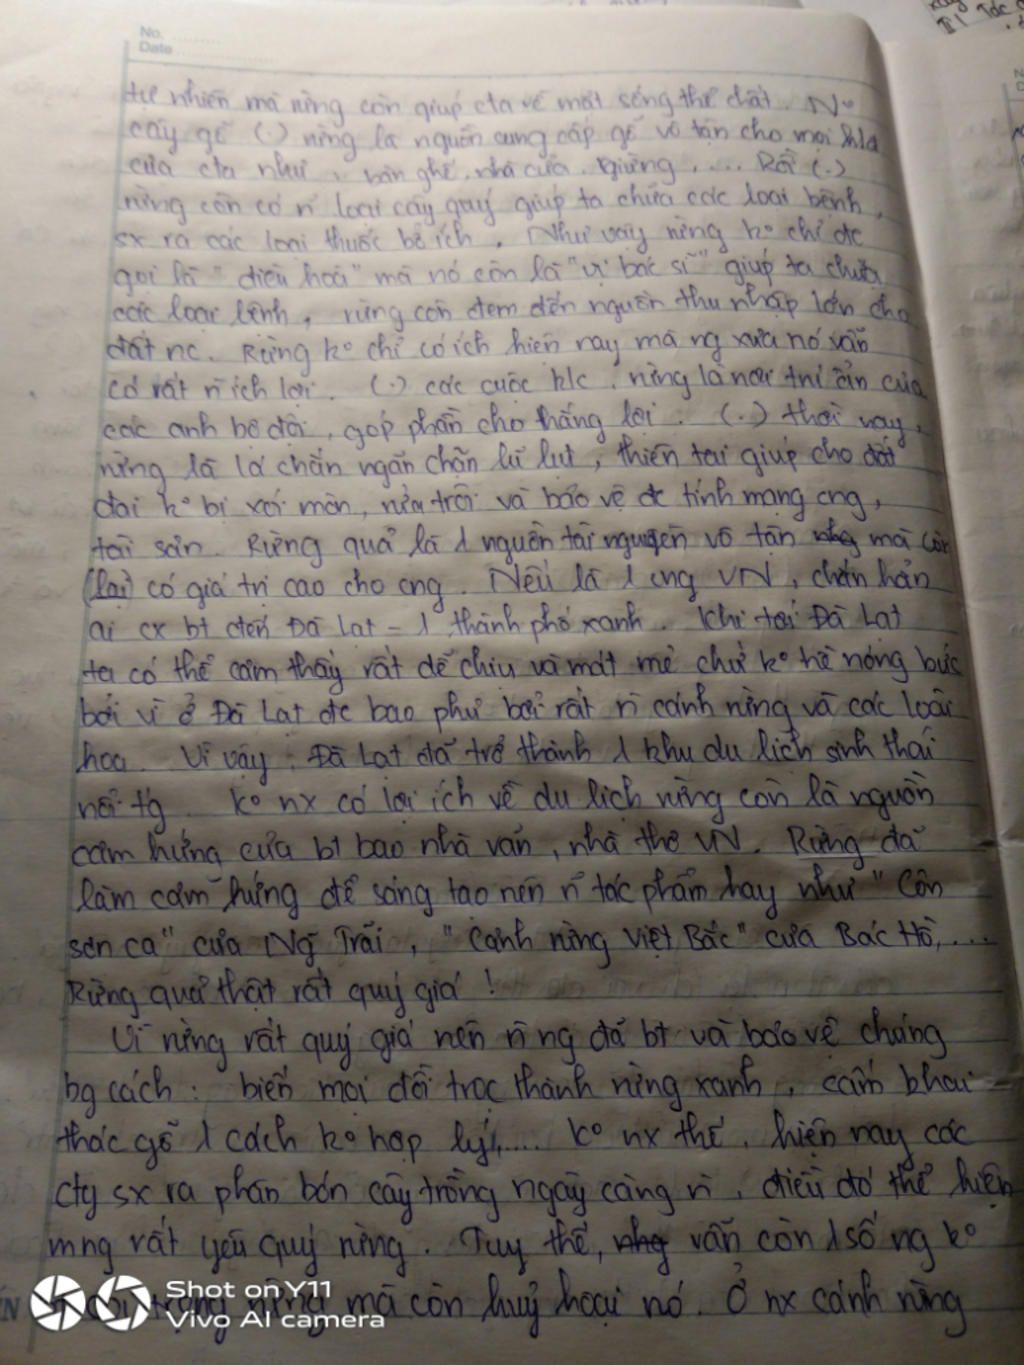 No.
Date
tự nhiên mà rừng còn giúp cta về mặt sống thể chất. N°
cây gỗ (.) rừng là nguồn cung cấp gỗ vô tận cho mọi
của cta như: bàn ghế, nhà cửa, giường, .... Rồi (.)
rừng còn có n̄ loại cây quý giúp ta chữa các loại bệnh,
sx ra các loại thuốc bổ ích. Như vậy rừng k° chỉ đc
gọi là "điều hoà" mà nó còn là "vị bác sĩ" giúp ta chữa
các loại bệnh, rừng còn đem đến nguồn thu nhập lớn cho
đất nc. Rừng k° chỉ có ích hiện nay mà ng xưa nó vẫn
có rất n̄ ích lợi. (.) các cuộc k/c, rừng là nơi trú ẩn của
các anh bộ đội, góp phần cho thắng lợi. (.) thời nay,
rừng là lá chắn ngăn chặn lũ lụt, thiên tai giúp cho đất
đai k° bị xói mòn, rửa trôi và bảo vệ đc tính mạng cng,
tài sản. Rừng quả là 1 nguồn tài nguyên vô tận nhg mà còn
(lại) có giá trị cao cho cng. Nếu là 1 cng VN, chắn hẳn
ai cx bt đến Đà Lạt - 1 thành phố xanh. Khi tới Đà Lạt
ta có thể cảm thấy rất dễ chịu và mát mẻ chứ k° hề nóng bức
bởi vì ở Đà Lạt đc bao phủ bởi rất n̄ cánh rừng và các loài
hoa. Vì vậy, Đà Lạt đã trở thành 1 khu du lịch sinh thái
nổi tg. K° nx có lợi ích về du lịch rừng còn là nguồn
cảm hứng của bt bao nhà văn, nhà thơ VN. Rừng đã
làm cảm hứng để sáng tạo nên n̄ tác phẩm hay như "Côn
sơn ca" của Ng~ Trãi, "Cảnh rừng Việt Bắc" của Bác Hồ,...
Rừng quả thật rất quý giá!
Vì rừng rất quý giá nên n̄ ng đã bt và bảo vệ chúng
bg cách: biến mọi đồi trọc thành rừng xanh, cấm khai
thác gỗ 1 cách k° hợp lý,.... K° nx thế, hiện nay các
cty sx ra phân bón cây trồng ngày càng n̄, điều đó thể hiện
mng rất yêu quý rừng. Tuy thế, nhg vẫn còn 1 số ng k°
trọng rừng mà còn huỷ hoại nó. Ở nx cánh rừng
Shot on Y11
Vivo AI camera